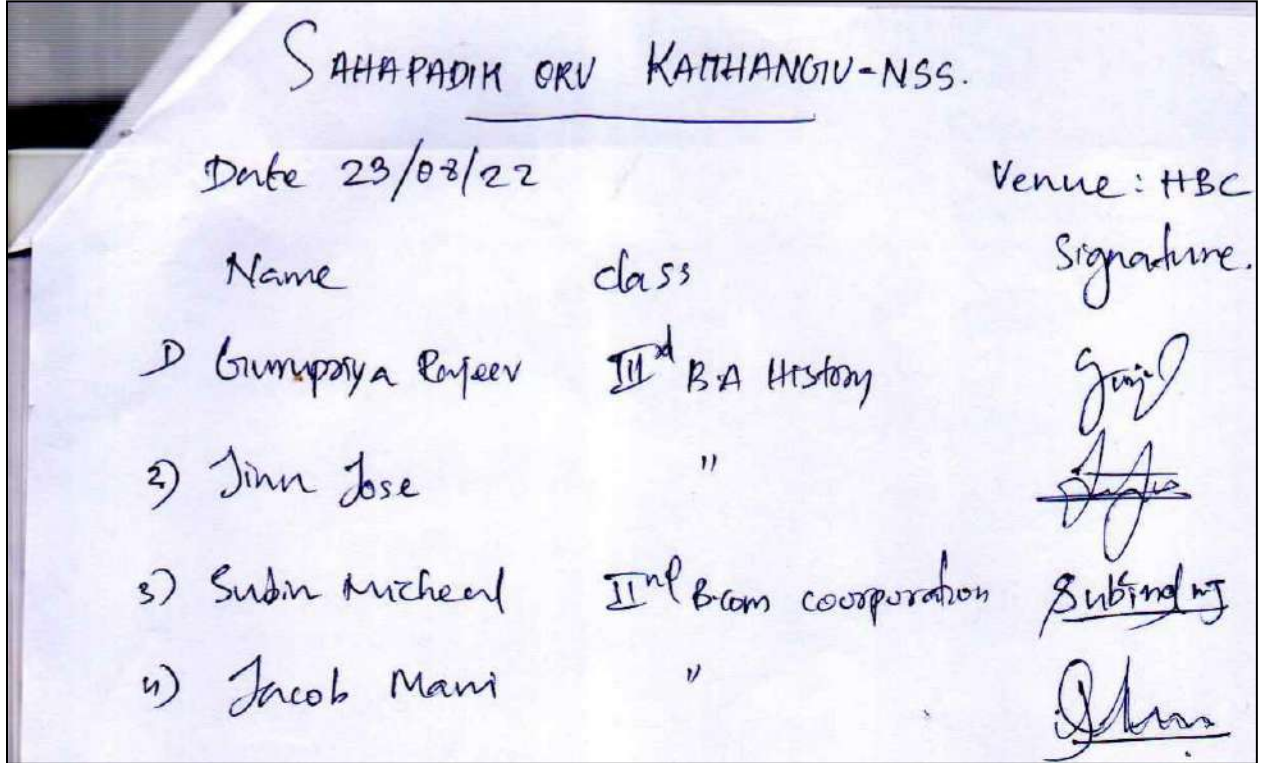 SAHAPADIK ORU KAITHANGU-NSS.
Date 23/08/22 Venue: HBC
Name class Signature.
1) Gurupriya Rajeev IIIrd BA History
2) Jinn Jose "
3) Subin Micheal IInd Bcom coorporation
4) Jacob Mani "